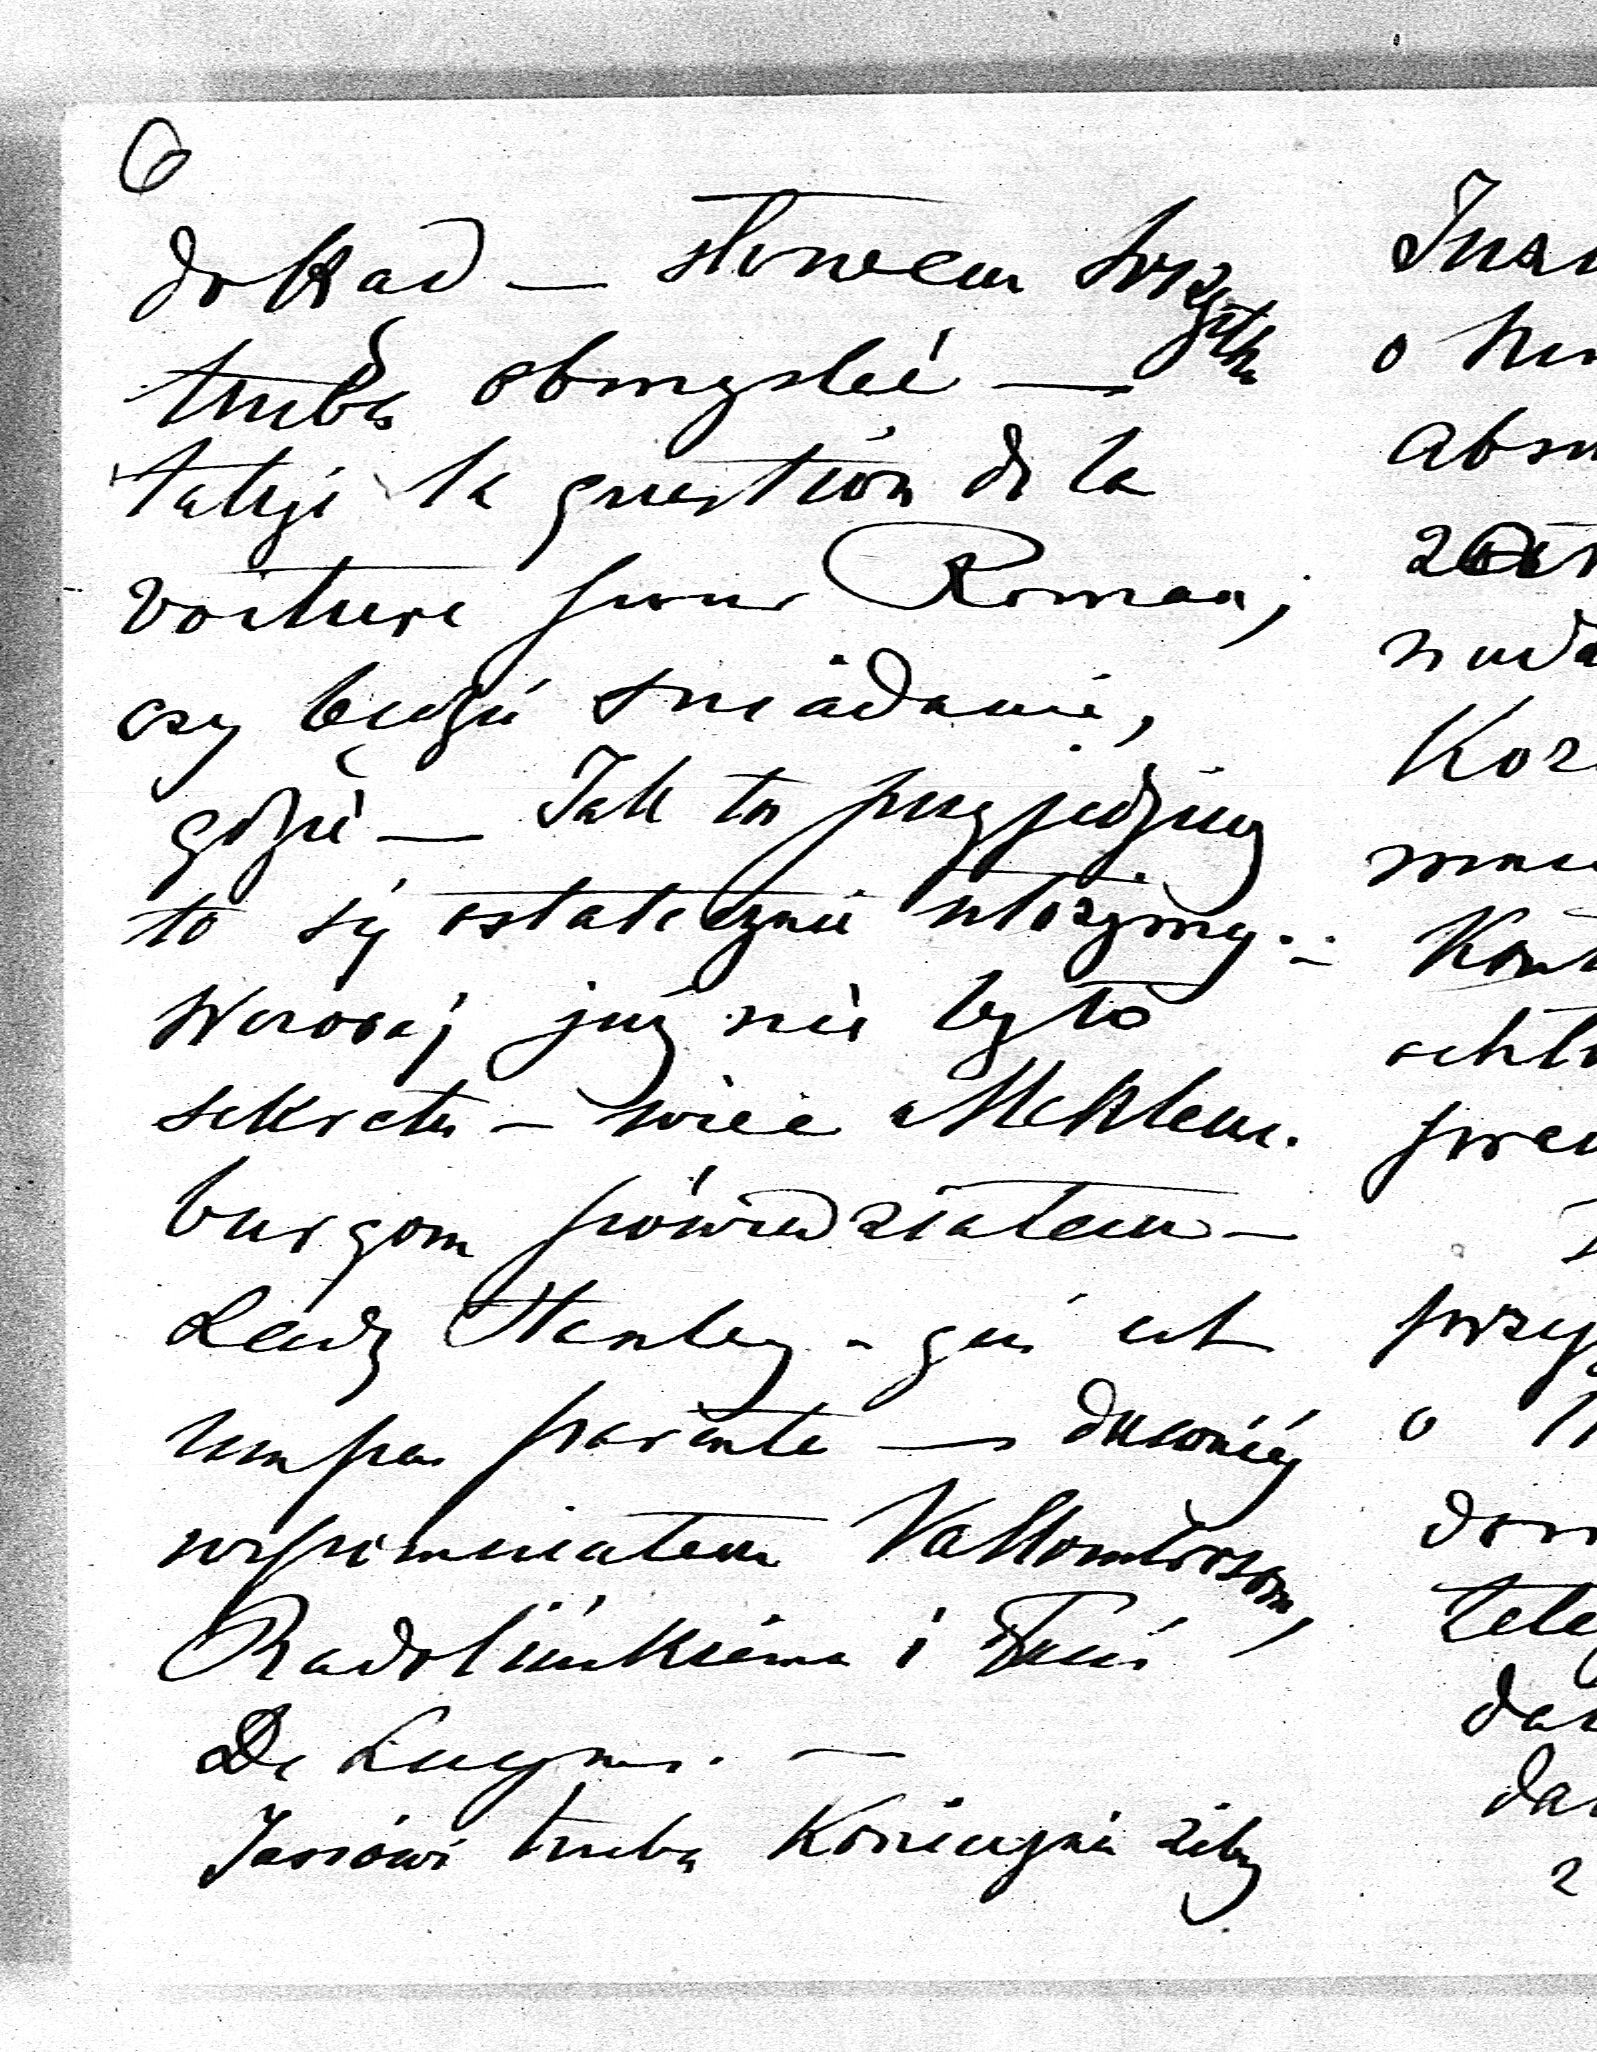 6
dokąd — słowem wszystko
trzeba obmyśleć —
także la question de la
voiture pour Roman,
czy będzie śniadanie,
gdzie — Jak tu przyjedziemy
to się ostatecznie ułożymy. —
Wczoraj już nie było
sekretu — więc Meklem-
burgom powiedziałem —
Lady Stanley — qui est
un peu parente — dawniej
wspominałem Vallombrosom,
Radolińskiemu i
De Luynes. —
Jasiowi trzeba koniecznie żeby